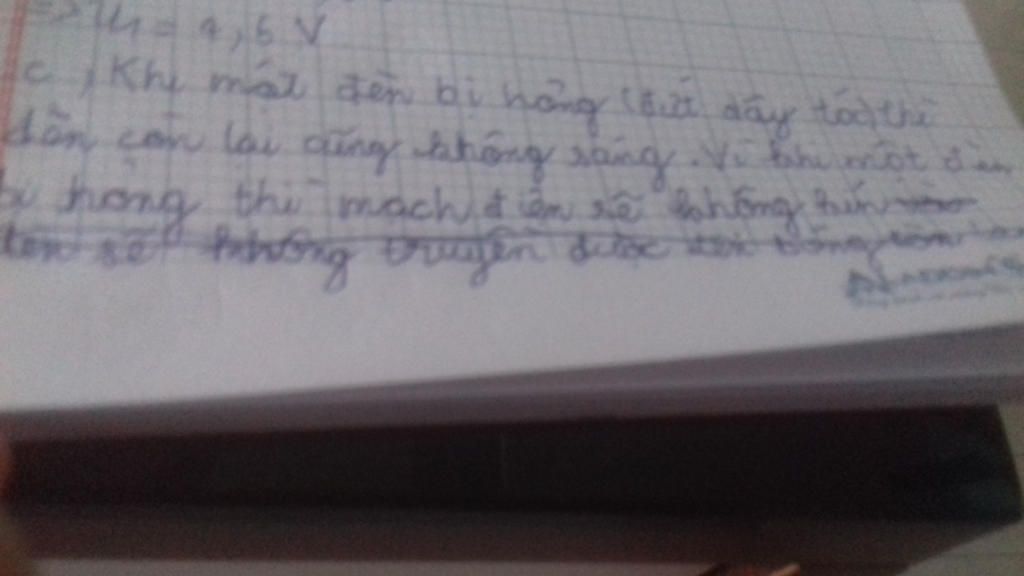 => U1 = 4,5 V
c, Khi một đèn bị hỏng (đứt dây tóc) thì
đèn còn lại cũng không sáng. Vì khi một đèn
bị hỏng thì mạch điện sẽ không kín
sẽ không truyền được